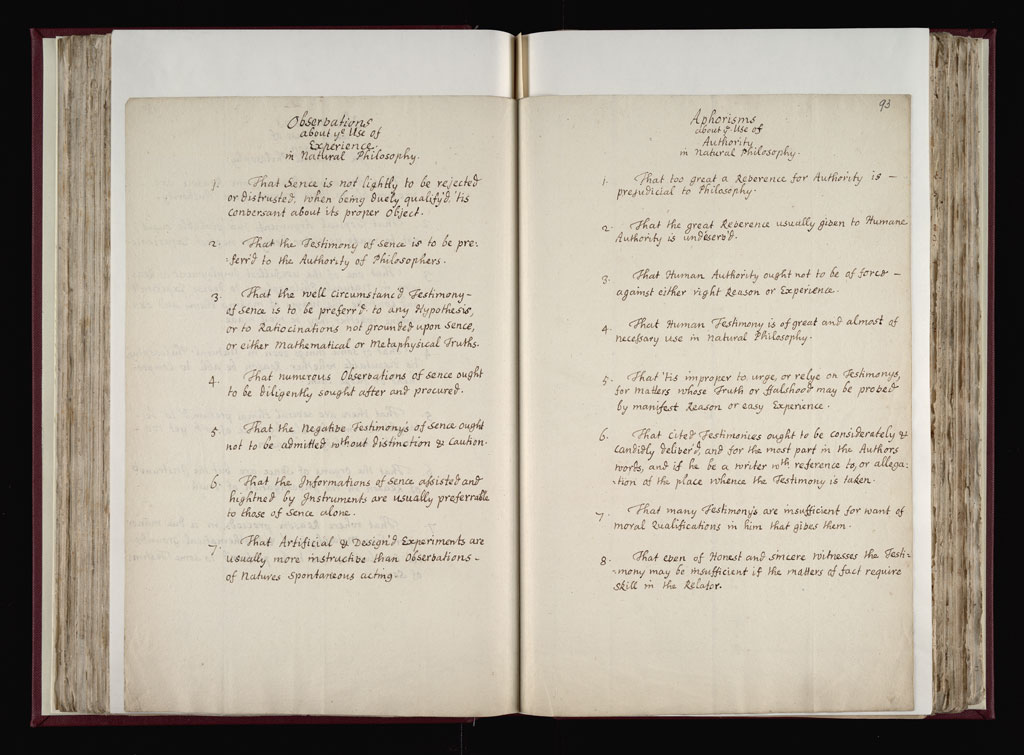 Observations
about yͤ Use of
Experience
in Natural Philosophy.
1. That Sence is not lightly to be rejected
or distrusted, when being duely qualify'd, 'tis
conversant about its proper Object.
2. That the Testimony of sence is to be pre:
:ferr'd to the Authority of Philosophers.
3. That the well circumstanc'd Testimony-
of sence is to be preferr'd to any Hypothesis,
or to Ratiocinations not grounded upon sence,
or either Mathematical or Metaphysical Truths.
4. That numerous Observations of sence ought
to be diligently sought after and procured.
5. That the Negative Testimony's of sence ought
not to be admitted without distinction & caution.
6. That the Informations of sence assisted and
hightned by Instruments are usually preferrable
to those of sence alone.
7. That Artificial & Design'd Experiments are
usually more instructive than Observations-
of Natures spontaneous acting.
93
Aphorisms
about yͤ Use of
Authority
in Natural Philosophy.
1. That too great a Reverence for Authority is -
prejudicial to Philosophy.
2. That the great Reverence usually given to Humane
Authority is undeserv'd.
3. That Human Authority ought not to be of force -
against either right Reason or Experience.
4. That Human Testimony is of great and almost of
necessary use in Natural Philosophy.
5. That 'tis improper to urge, or relye on Testimonys,
for matters whose Truth or ffalshood may be proved
by manifest Reason or easy Experience.
6. That cited Testimonies ought to be considerately &
candidly deliver'd, and for the most part in the Authors
words, and if he be a writer wth reference to, or allega:
:tion of the place whence the Testimony is taken.
7. That many Testimony's are insufficient for want of
moral Qualifications in him that gives them.
8. That even of Honest and sincere witnesses the Testi:
:mony may be insufficient if the matters of fact require
skill in the Relator.